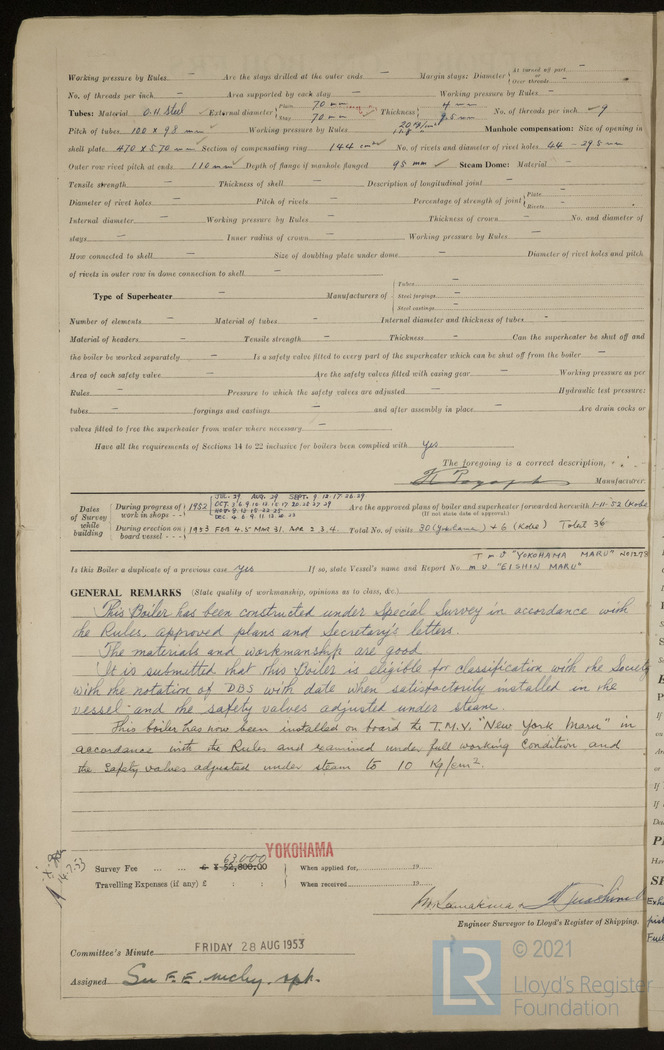 Working pressure by Rules — Are the stays drilled at the outer ends — Margin stays: Diameter { At turned off part — or Over threads —
No. of threads per inch — Area supported by each stay — Working pressure by Rules —
Tubes: Material O.H Steel External diameter { Plain 70 mm Stay 70 mm Thickness { 4 mm 9.5 mm No. of threads per inch 9
Pitch of tubes 100 x 98 mm Working pressure by Rules Manhole compensation: Size of opening in
shell plate 470 x 570 mm Section of compensating ring 144 cm² No. of rivets and diameter of rivet holes 44 - 29.5 mm
Outer row rivet pitch at ends 110 mm Depth of flange if manhole flanged 95 mm Steam Dome: Material —
Tensile strength Thickness of shell — Description of longitudinal joint —
Diameter of rivet holes — Pitch of rivets — Percentage of strength of joint { Plate — Rivets —
Internal diameter — Working pressure by Rules — Thickness of crown — No. and diameter of
stays — Inner radius of crown — Working pressure by Rules —
How connected to shell — Size of doubling plate under dome — Diameter of rivet holes and pitch
of rivets in outer row in dome connection to shell —
Type of Superheater — Manufacturers of { Tubes — Steel forgings — Steel castings —
Number of elements — Material of tubes — Internal diameter and thickness of tubes —
Material of headers — Tensile strength — Thickness — Can the superheater be shut off and
the boiler be worked separately — Is a safety valve fitted to every part of the superheater which can be shut off from the boiler —
Area of each safety valve — Are the safety valves fitted with easing gear — Working pressure as per
Rules — Pressure to which the safety valves are adjusted — Hydraulic test pressure:
tubes — forgings and castings — and after assembly in place — Are drain cocks or
valves fitted to free the superheater from water where necessary —
Have all the requirements of Sections 14 to 22 inclusive for boilers been complied with Yes
The foregoing is a correct description,
Manufacturer.
Dates of Survey while building
During progress of work in shops - - } 1952 JUL. 29 AUG. 29 SEPT. 9. 12. 17. 26. 29
Are the approved plans of boiler and superheater forwarded herewith 1-11-52 (Kobe
(If not state date of approval.)
During erection on board vessel - - - } 1953 FEB 4.5 MAR 31. APR 2 3.4. Total No. of visits 30 (Yokohama) + 6 (Kobe) Total 36
T m V "YOKOHAMA MARU" NO1273
Is this Boiler a duplicate of a previous case yes If so, state Vessel's name and Report No. m V "EISHIN MARU"
GENERAL REMARKS (State quality of workmanship, opinions as to class, &c.)
This Boiler has been constructed under Special Survey in accordance with
the Rules, approved plans and Secretary's letters.
The materials and workmanship are good
It is submitted that this Boiler is eligible for classification with the Society
with the notation of DBS with date when satisfactorily installed in the
vessel and the safety valves adjusted under steam.
This boiler has now been installed on board the T.M.V. "New York Maru" in
accordance with the Rules and examined under full working condition and
the safety valves adjusted under steam to 10 Kg/cm².
YOKOHAMA
63,000
Survey Fee ... ... £ ¥ 52,800.00 When applied for, 19
Travelling Expenses (if any) £ : : When received 19
Engineer Surveyor to Lloyd's Register of Shipping.
Committee's Minute FRIDAY 28 AUG 1953
Assigned See F.E. mchy. rpt.
LR
© 2021
Lloyd's Register
Foundation